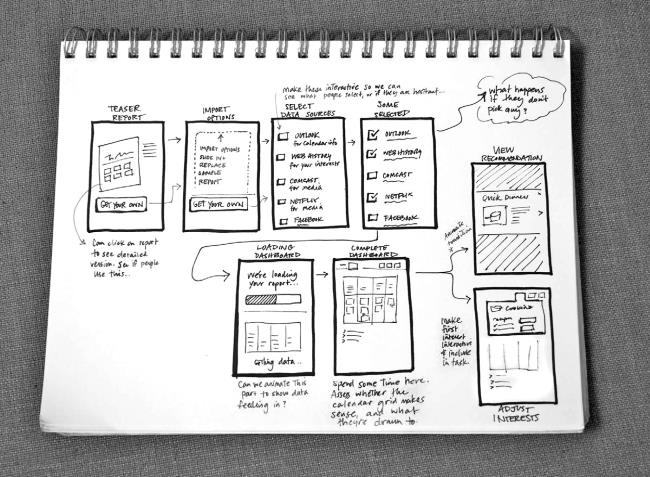 make these interactive so we can
see what people select, or if they are hesitant...
What happens
if they don't
pick any?
TEASER
REPORT
IMPORT
OPTIONS
SELECT
DATA SOURCES
SOME
SELECTED
GET YOUR OWN
IMPORT OPTIONS
SLIDE IN &
REPLACE
SAMPLE
REPORT
GET YOUR OWN
OUTLOOK
for calendar info
WEB HISTORY
for your interests
COMCAST
for media
NETFLIX
for media
FACEBOOK
OUTLOOK
WEB HISTORY
COMCAST
NETFLIX
FACEBOOK
VIEW
RECOMMENDATION
Quick Dinners
Can click on report
to see detailed
version. See if people
use this...
LOADING
DASHBOARD
We're loading
your report...
Getting data...
Can we animate this
part to show data
feeding in?
COMPLETE
DASHBOARD
Spend some time here.
Assess whether the
calendar grid makes
sense, and what
they're drawn to.
Animate
transition
Make
first
interest
interactive
& include
in task.
Cooking
ADJUST
INTERESTS